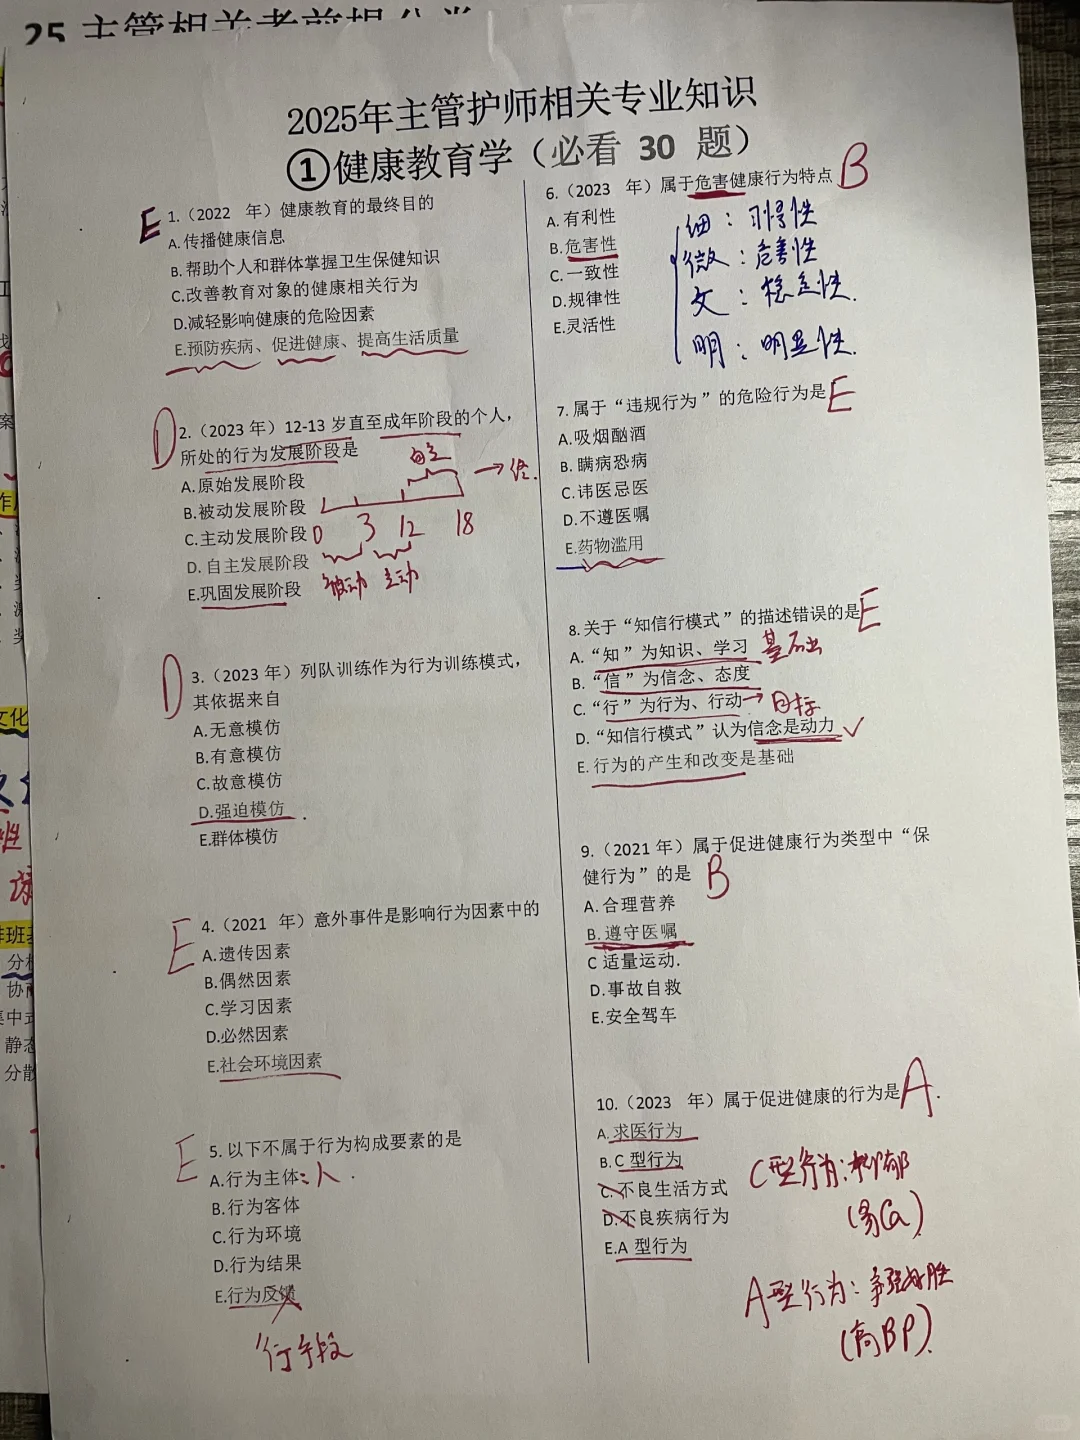 2025年主管护师相关专业知识
①健康教育学（必看 30 题）
E 1.（2022 年）健康教育的最终目的
A.传播健康信息
B.帮助个人和群体掌握卫生保健知识
C.改善教育对象的健康相关行为
D.减轻影响健康的危险因素
E.预防疾病、促进健康、提高生活质量
D 2.（2023 年）12-13 岁直至成年阶段的个人，
所处的行为发展阶段是
自主
A.原始发展阶段
→终.
B.被动发展阶段
C.主动发展阶段 0 3 12 18
D.自主发展阶段
E.巩固发展阶段 被动 主动
D 3.（2023 年）列队训练作为行为训练模式，
其依据来自
A.无意模仿
B.有意模仿
C.故意模仿
D.强迫模仿
E.群体模仿
E 4.（2021 年）意外事件是影响行为因素中的
A.遗传因素
B.偶然因素
C.学习因素
D.必然因素
E.社会环境因素
E 5.以下不属于行为构成要素的是
A.行为主体:人
B.行为客体
C.行为环境
D.行为结果
E.行为反馈
行 手段
6.（2023 年）属于危害健康行为特点 B
A.有利性
B.危害性
C.一致性
D.规律性
E.灵活性
细：习惯性
微：危害性
文：稳定性.
明：明显性.
7.属于“违规行为”的危险行为是 E
A.吸烟酗酒
B.瞒病恐病
C.讳医忌医
D.不遵医嘱
E.药物滥用
8.关于“知信行模式”的描述错误的是 E
A.“知”为知识、学习 基础
B.“信”为信念、态度
C.“行”为行为、行动→目标
D.“知信行模式”认为信念是动力 ✓
E.行为的产生和改变是基础
9.（2021 年）属于促进健康行为类型中“保
健行为”的是 B
A.合理营养
B.遵守医嘱
C 适量运动.
D.事故自救
E.安全驾车
10.（2023 年）属于促进健康的行为是 A.
A.求医行为
B.C 型行为
C.不良生活方式
D.不良疾病行为
E.A 型行为
C型行为:抑郁
(易Ca)
A型行为:争强好胜
(高BP).